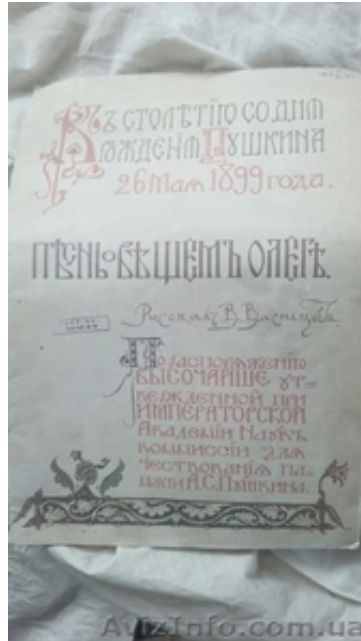 Къ столѣтію со дня
рожденія Пушкина
26 Мая 1899 года.
Пѣснь о вѣщемъ Олегѣ.
Рисовалъ В. Васнецовъ.
По распоряженію
высочайше ут-
вержденной при
Императорской
Академіи Наукъ
коммиссіи для
чествованія па-
мяти А.С.Пушкина.
AvizInfo.com.ua